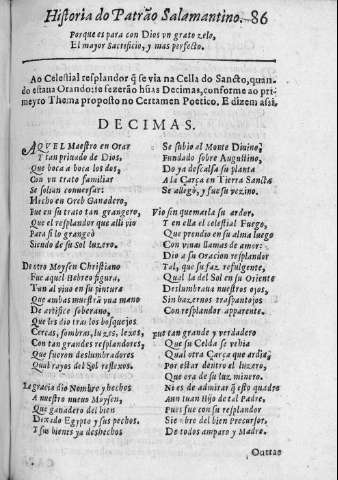 Historia do Patrão Salamantino. 86
Porque es para con Dios vn grato zelo,
El mayor Sacreficio, y mas perfecto.
Ao Celestial resplandor q̃ se via na Cella do Sancto, quan-
do estaua Orando: se fezerão hũas Decimas, conforme ao pri-
meyro Thema proposto no Certamen Poetico. E dizem assi.
DECIMAS.
AQVEL Maestro en Orar
Tan priuado de Dios,
Que boca a boca los dos,
Con vn trato familiar
Se solian conuersar:
Hecho en Oreb Ganadero,
Fue en su trato tan grangero,
Que el resplandor que alli vio
Para si lo grangeò
Siendo de su Sol luzero.
De otro Moysen Christiano
Fue aquel Hebreo figura,
Tan al viuo en su pintura
Que ambas muestrã vna mano
De artifice soberano,
Que les dio tras los bosquejos
Cereas, sombras, luzes, lexos,
Con tan grandes resplandores,
Que fueron deslumbradores
Qual rayos del Sol reflexos.
La gracia dio Nombre y hechos
A nuestro nueuo Moysen,
Que ganadero del bien
Dexado Egypto y sus pechos,
Y sus bienes ya deshechos
Se subio al Monte Diuino,
Fundado sobre Augustino,
Do ya descalsa su planta
A la Çarça en Tierra Sancta
Se allegò, y fue su vezino.
Vio sin quemarla su ardor,
Y en ella el celestial Fuego,
Que prendio en su alma luego
Con viuas llamas de amor:
Dio a su Oracion resplandor
Tal, que su faz refulgente,
Qual la del Sol en su Oriente
Deslumbraua nuestros ojos,
Sin hazernos traspantojos
Con resplandor apparente.
Fue tan grande y verdadero
Que su Celda se vehia
Qual otra Çarça que ardia,
Por estar dentro el luzero,
Que era de su luz minero.
Ni es de admirar q̃ esto quadre
A un Iuan Hijo de tal Padre,
Pues fue con su resplandor
Siempre del bien Precursor,
De todos amparo y Madre.
Outras